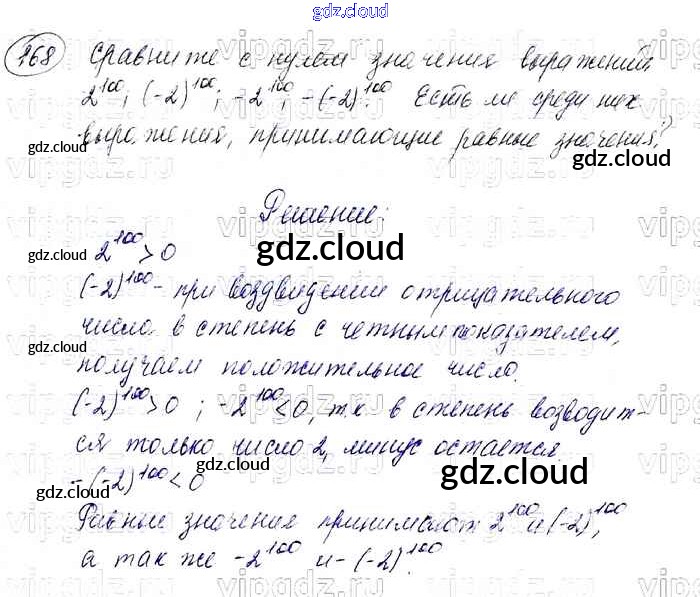 gdz.cloud
168 Сравните с нулем значения выражений
2^100; (-2)^100; -2^100; -(-2)^100. Есть ли среди них
выражения, принимающие равные значения?
gdz.cloud
gdz.cloud
Решение:
2^100 > 0
gdz.cloud
gdz.cloud
(-2)^100 - при воздвидении отрицательного
число в степень с четным показателем,
gdz.cloud
получаем положительное число.
(-2)^100 > 0 ; -2^100 < 0, т.к. в степень возводит-
ся только число 2, минус остается
-(-2)^100 < 0
gdz.cloud
gdz.cloud
gdz.cloud
Равные значения принимают 2^100 и (-2)^100,
а так же -2^100 и -(-2)^100.